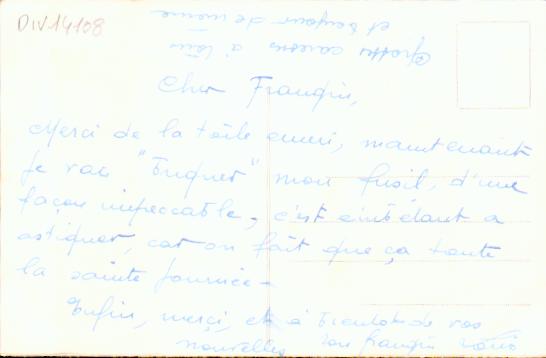 DIV14108
Cher Frangin,
Merci de la toile emeri, maintenant
je vais "briquer" mon fusil, d'une
façon impeccable, c'est embêtant a
astiquer, car on fait que ça toute
la sainte journée -
Enfin, merci, et à bientot de vos
nouvelles ton frangin
Grosses caresses à tous
et bonjour de meme